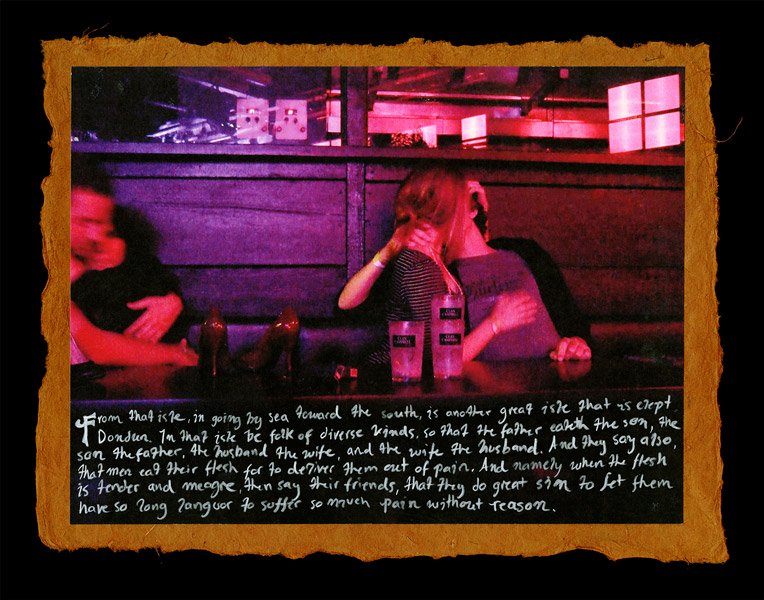 From that isle, in going by sea toward the south, is another great isle that is clept
Dondun. In that isle be folk of diverse kinds, so that the father eateth the son, the
son the father, the husband the wife, and the wife the husband. And they say also,
that men eat their flesh for to deliver them out of pain. And namely when the flesh
is tender and meagre, then say their friends, that they do great sin to let them
have so long languor to suffer so much pain without reason.